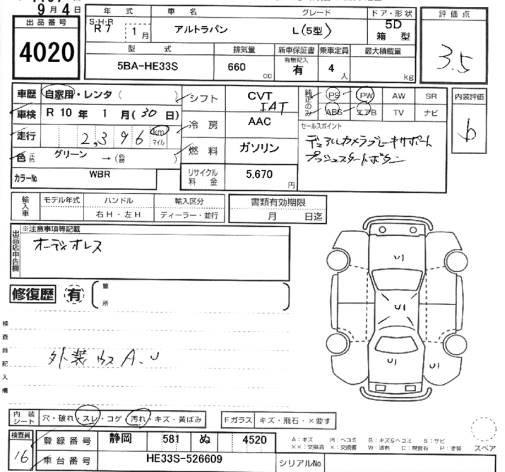 9月4日
出品番号
4020
S・H・R 年式 車名 グレード ドア・形状
R 7 1月 アルトラパン L(5型) 5D 箱型
型式 排気量 新車保証書 乗車定員 最大積載量
5BA-HE33S 660 cc 有無記入 有 4人 kg
評価点
3.5
車歴 自家用・レンタ( )
シフト CVT IAT
純正のみ PS PW AW SR
ABS エアB TV ナビ
内装評価
b
車検 R 10年 1月(30日)
冷房 AAC
走行 2,396 km マイル
燃料 ガソリン
セールスポイント
デュアルカメラブレーキサポート
プッシュスタートボタン
色 (元色) グリーン → (色替)
カラーNo WBR
リサイクル料金 5,670円
輸入車 モデル年式 ハンドル 輸入区分
右H・左H ディーラー・並行
書類有効期限
月 日迄
出品店申告欄
※注意事項等記載
オーディオレス
修復歴 有 箇所
検査員記入欄
外装凹A.U
U1
U1
U1
内装シート 穴・破れ・スレ・コゲ・汚れ・キズ・黄ばみ
Fガラス キズ・飛石・×要す
検査員
16
登録番号 静岡 581 ぬ 4520
車台番号 HE33S-526609
シリアルNo
A:キズ U:ヘコミ B:キズ&ヘコミ S:サビ
スペア